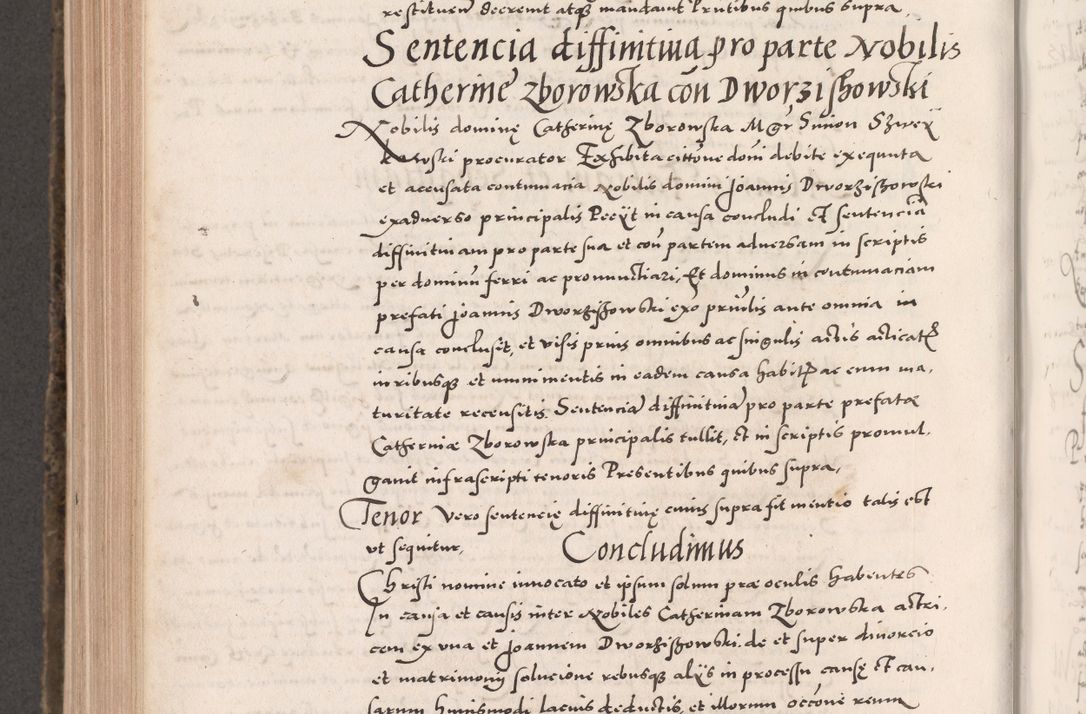 restituen decrevit atq mandavit Prntibus quibus supra
Sentencia diffinitiua pro parte Nobilis
Catherine Zborowska con Dworzishowski
Nobilis dominę Catherinę Zborowska Mgr Simon Szwey
kowski procurator Exhibita cittone domi debite exequuta
et accusata contumacia Nobilis domini Joannis Dworzishowski
exadverso principalis Peciyt in causa concludi Et sentenciã
diffinitiuam pro parte sua et con partem adversam in scriptis
per dominũ ferri ac pronunctiari, Et dominus in contumaciam
prefati Joannis Dworzishowski exo prinlis ante omnia in
causa conclusit, et visis prius omnibus ac singulis actis acticatis
iuribusq et munimentis in eadem causa habitis ac cum ma,
turitate recensitis Sentenciã diffinitiuã pro parte prefatæ
Catherinæ Zborowska principalis tullit, et in scriptis promul,
gavit infrascripti tenoris Presentibus quibus supra,
Tenor vero sentencię diffinitiuę cuius supra fit mentio talis est
ut sequitur, Concludimus
Christi nomine invocato et ipsum solum præ oculis habentes
In causa et causis inter Nobiles Catherinam Zborowska actri,
cem ex una et Joannem Dworzishowski de et super divorcio
et matrimonij solucione rebusq alijs in processu causę et cau,
sarum huiusmodi lacius deductis, et illorum occõne reum